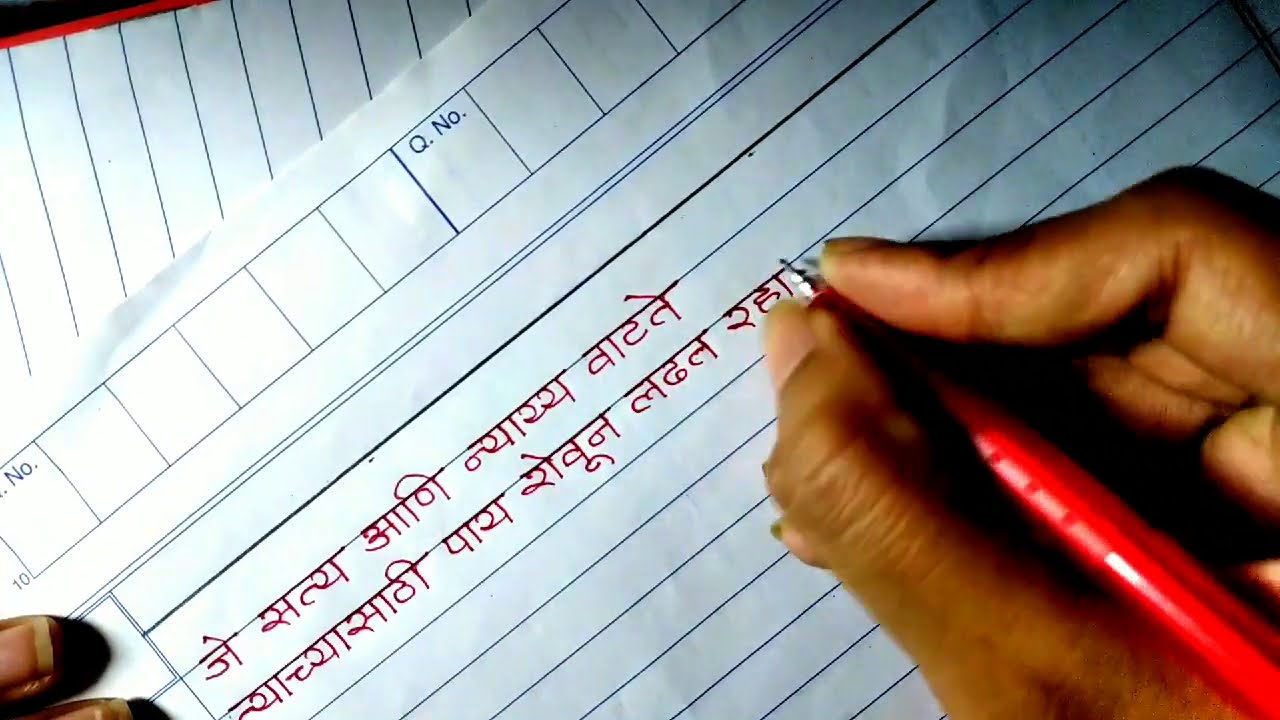 Q. No.
. No.
10
जे सत्य आणि न्याय्य वाटते
त्याच्यासाठी पाय रोवून लढल रहा